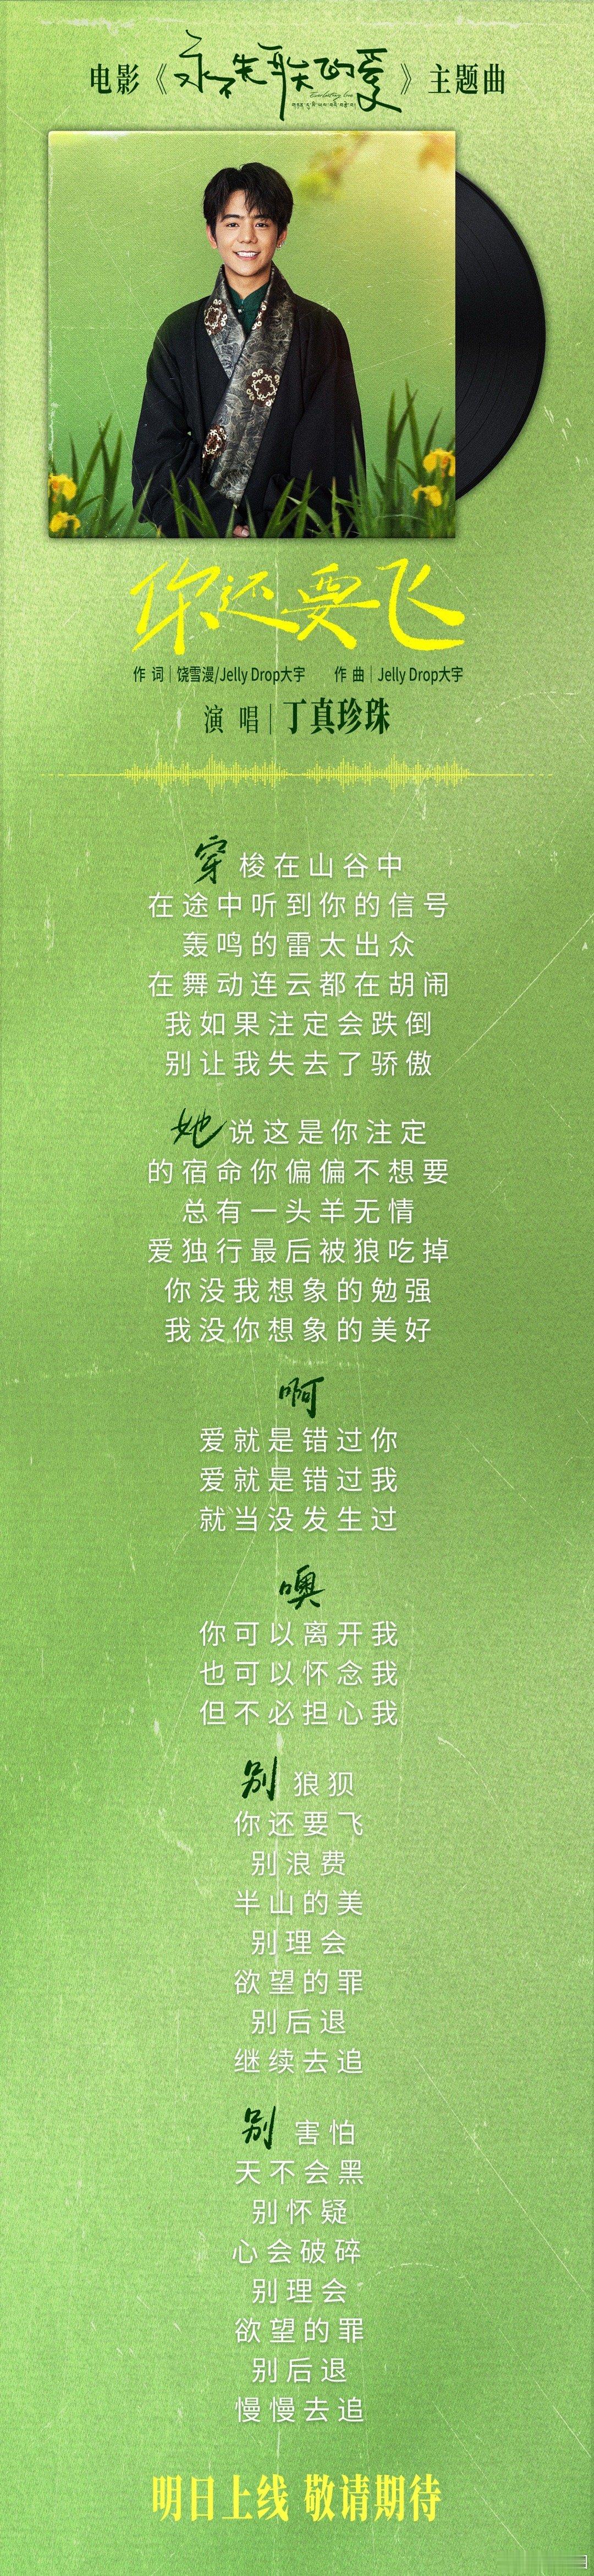 电影《永不失联的爱》主题曲
Everlasting love
你还要飞
作词|饶雪漫/Jelly Drop大宇 作曲|Jelly Drop大宇
演唱|丁真珍珠
穿梭在山谷中
在途中听到你的信号
轰鸣的雷太出众
在舞动连云都在胡闹
我如果注定会跌倒
别让我失去了骄傲
她说这是你注定
的宿命你偏偏不想要
总有一头羊无情
爱独行最后被狼吃掉
你没我想象的勉强
我没你想象的美好
啊
爱就是错过你
爱就是错过我
就当没发生过
噢
你可以离开我
也可以怀念我
但不必担心我
别狼狈
你还要飞
别浪费
半山的美
别理会
欲望的罪
别后退
继续去追
别害怕
天不会黑
别怀疑
心会破碎
别理会
欲望的罪
别后退
慢慢去追
明日上线 敬请期待